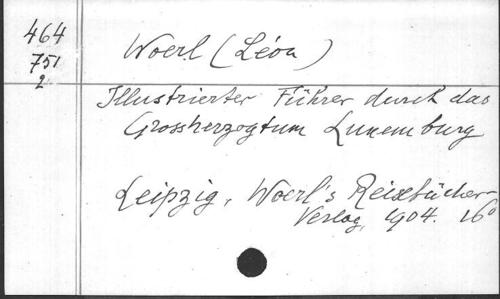 464
751
2
Woerl (Léon)
Illustrierter Führer durch das
Grossherzogtum Luxemburg
Leipzig, Woerl's Reisebücher-
Verlag, 1904. 16°